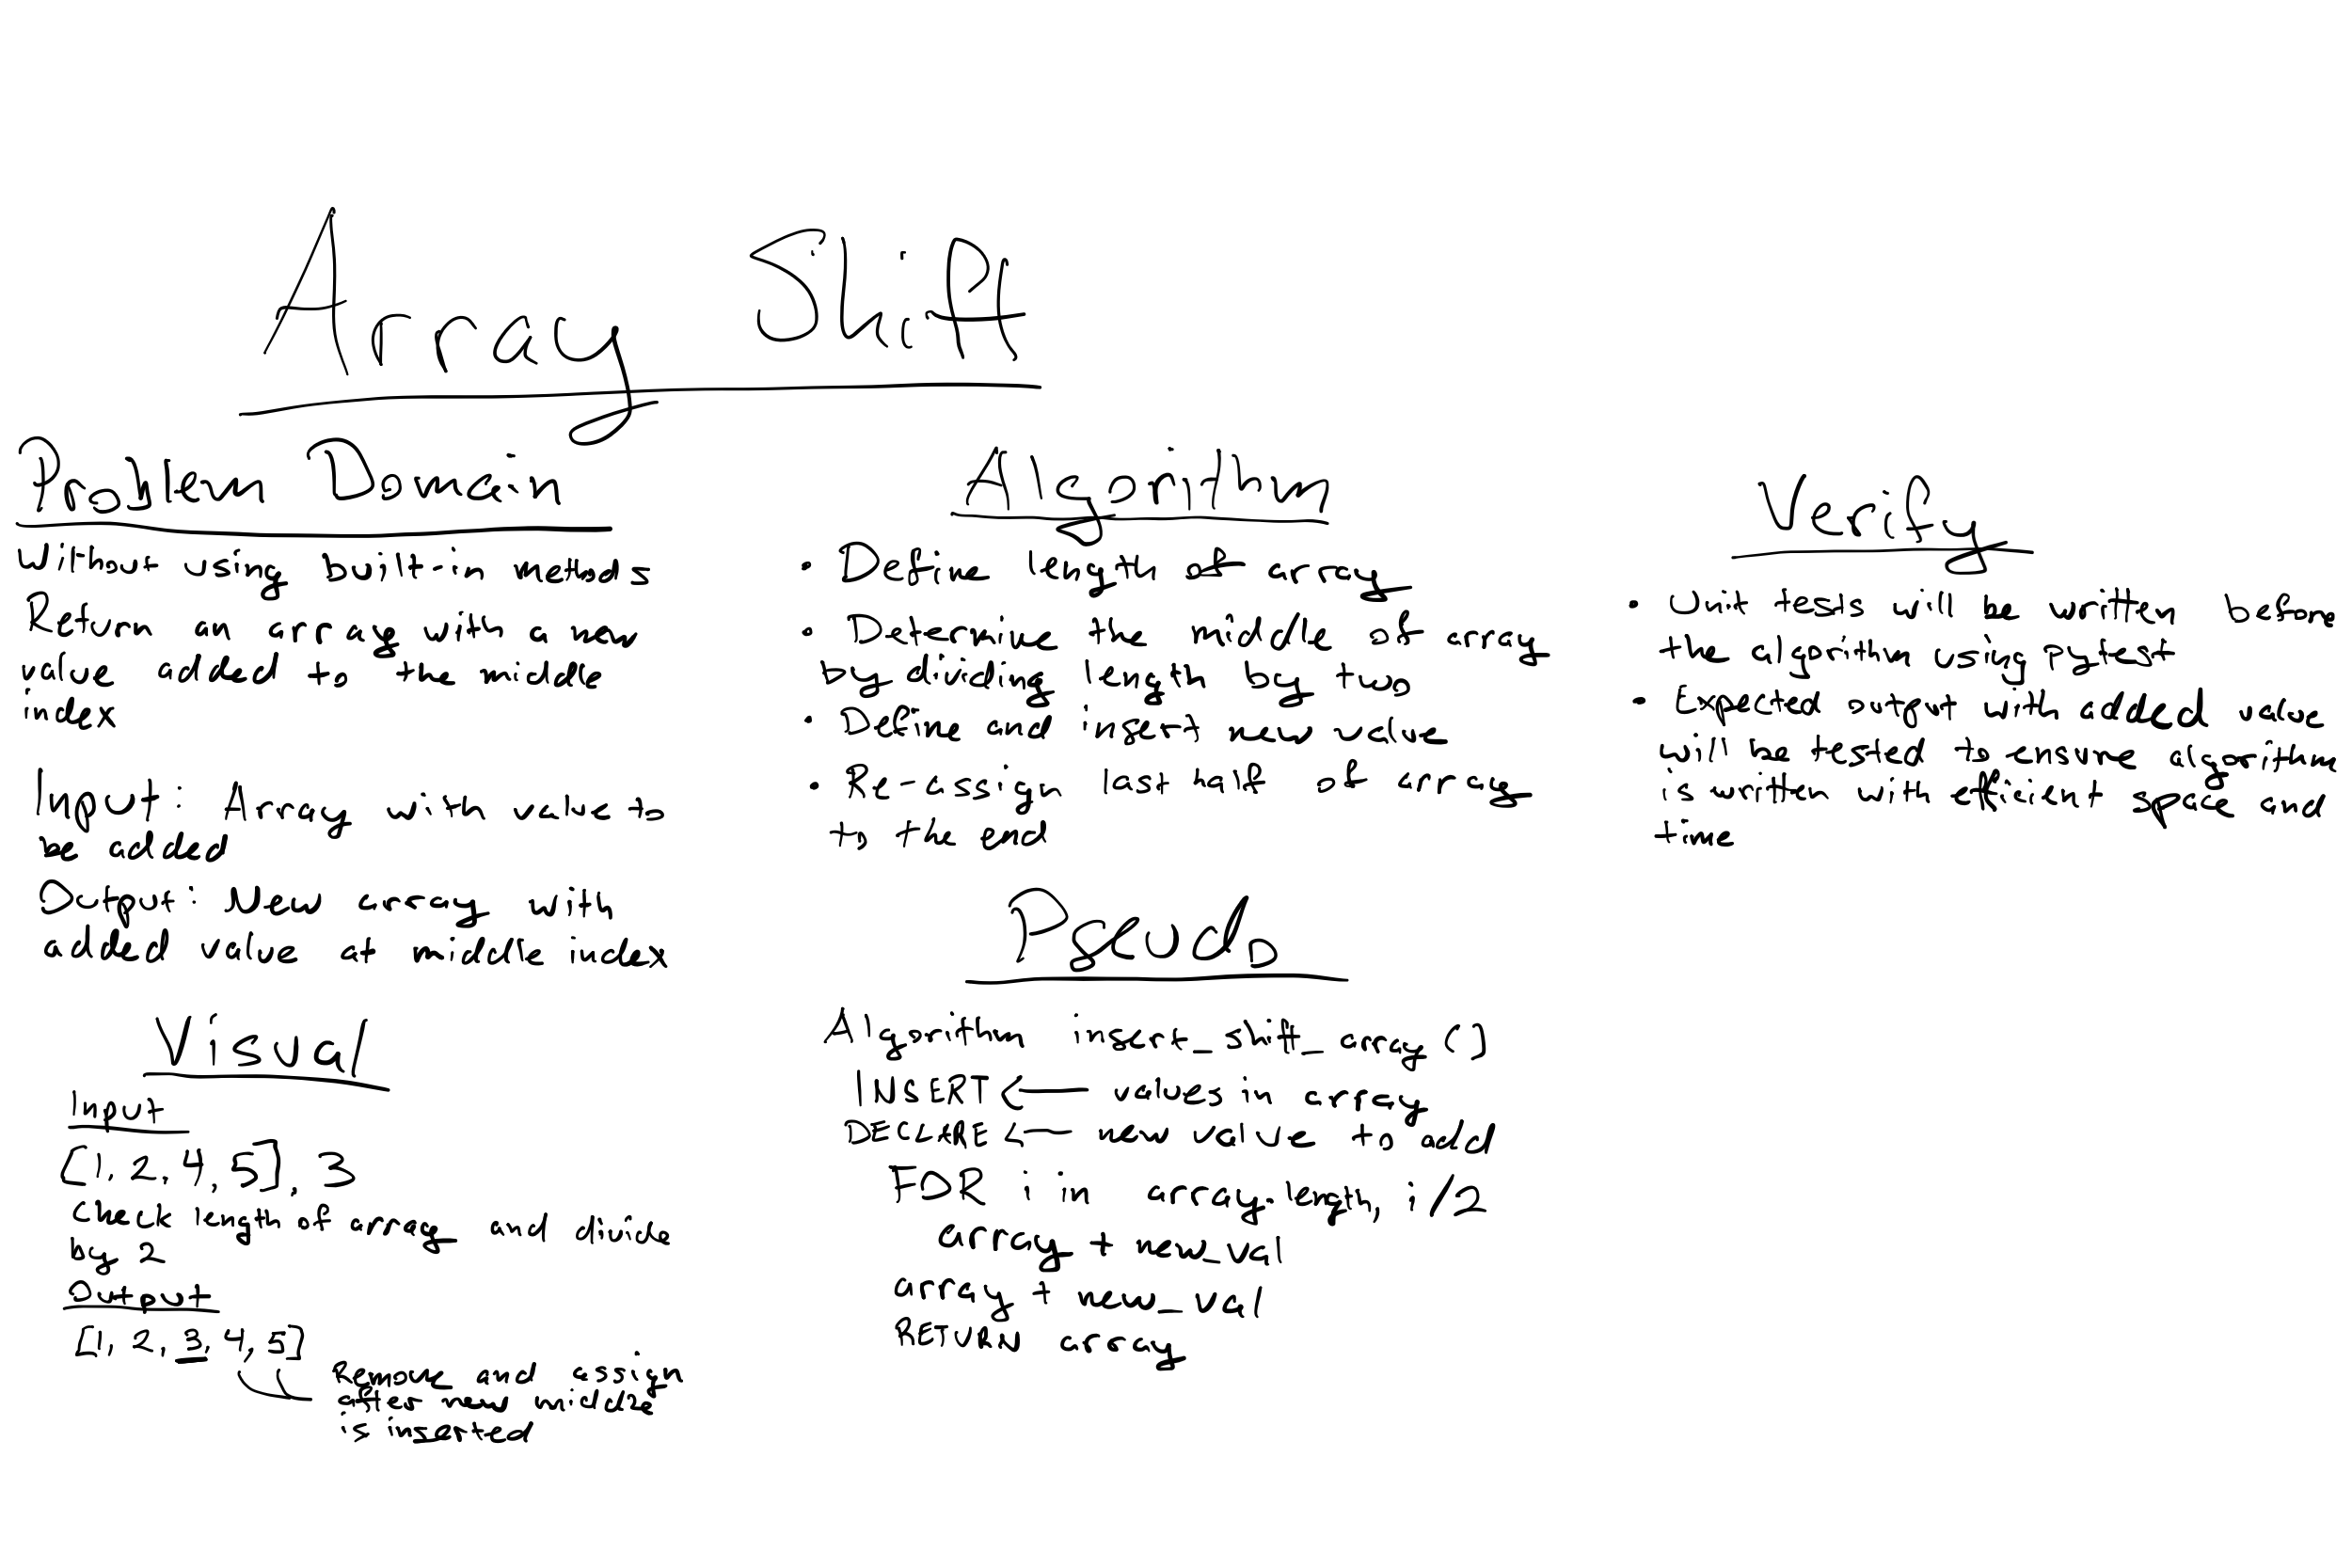 Array Shift
Problem Domain
Without using built-in methods
Return an array with a new
value added to the middle
index
Input: Array with value to
be added
Output: New array with
added value at middle index
Visual
Input
[1, 2, 4, 5], 3
Check length of array and divide
by 2
Output
[1, 2, 3, 4, 5]
Remove and assign
after new middle
is inserted
Algorithm
• Define length of array
• Determine the middle of array
by dividing length by two
• Define and insert new value
• Re-assign last half of array
to the end
Pseudo
Algorithm insert_shift_array ()
INSERT ← values in array
DECLARE ← new value to add
FOR i in array.length, i/2
array + new_val
array + new_val
RETURN array
Verify
• Unit tests will be written before
the algorithm using pytest
• Expected output with added value
will be tested to ensure algorithm
is written with efficient space and
time